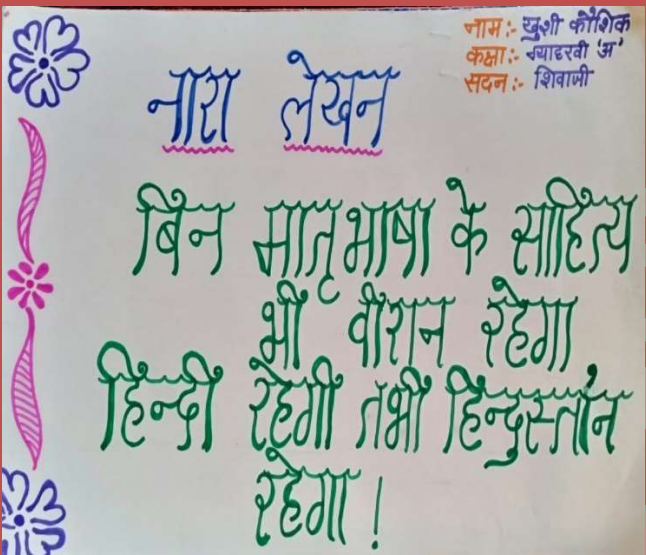 नाम :- खुशी कौशिक
कक्षा :- ग्यारहवी 'अ'
सदन :- शिवाजी
नारा लेखन
बिन मातृभाषा के साहित्य
भी वीरान रहेगा,
हिन्दी रहेगी तभी हिन्दुस्तान
रहेगा !